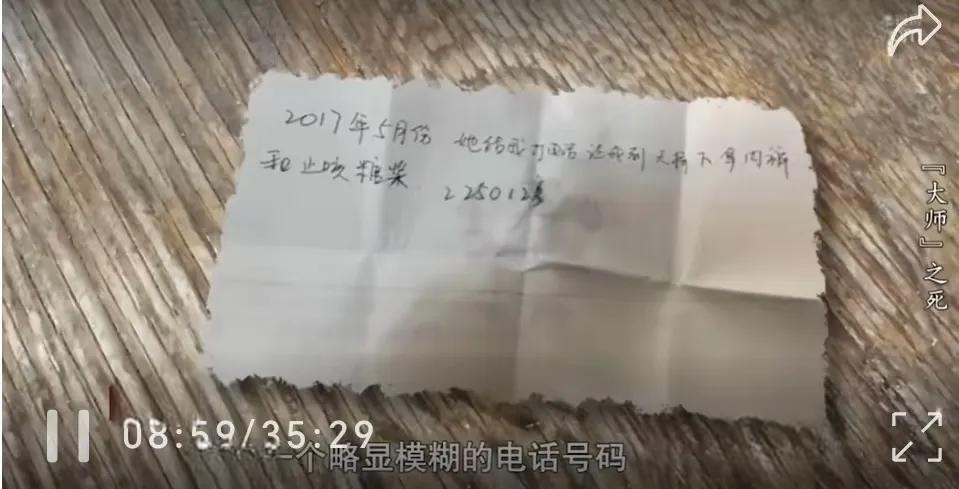 2017年5月份 她给我打电话让我到天桥下拿内裤
和止咳糖浆
225012
『大师』之死
08:59/35:29
一个略显模糊的电话号码